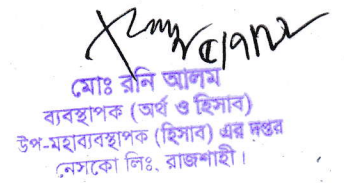 মোঃ রনি আলম
ব্যবস্থাপক (অর্থ ও হিসাব)
উপ-মহাব্যবস্থাপক (হিসাব) এর দপ্তর
নেসকো লিঃ, রাজশাহী।